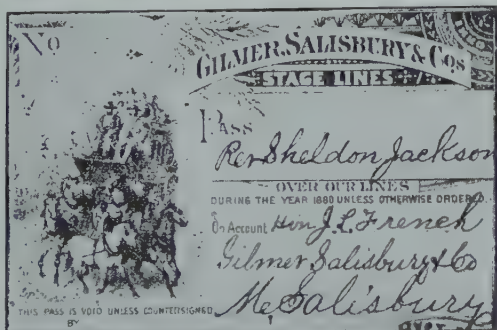 No
GILMER, SALISBURY & COS
STAGE LINES
PASS
Rev Sheldon Jackson
OVER OUR LINES
DURING THE YEAR 1880 UNLESS OTHERWISE ORDERED.
On Account Hon J. L. French
Gilmer Salisbury & Co
M Salisbury
THIS PASS IS VOID UNLESS COUNTERSIGNED
BY